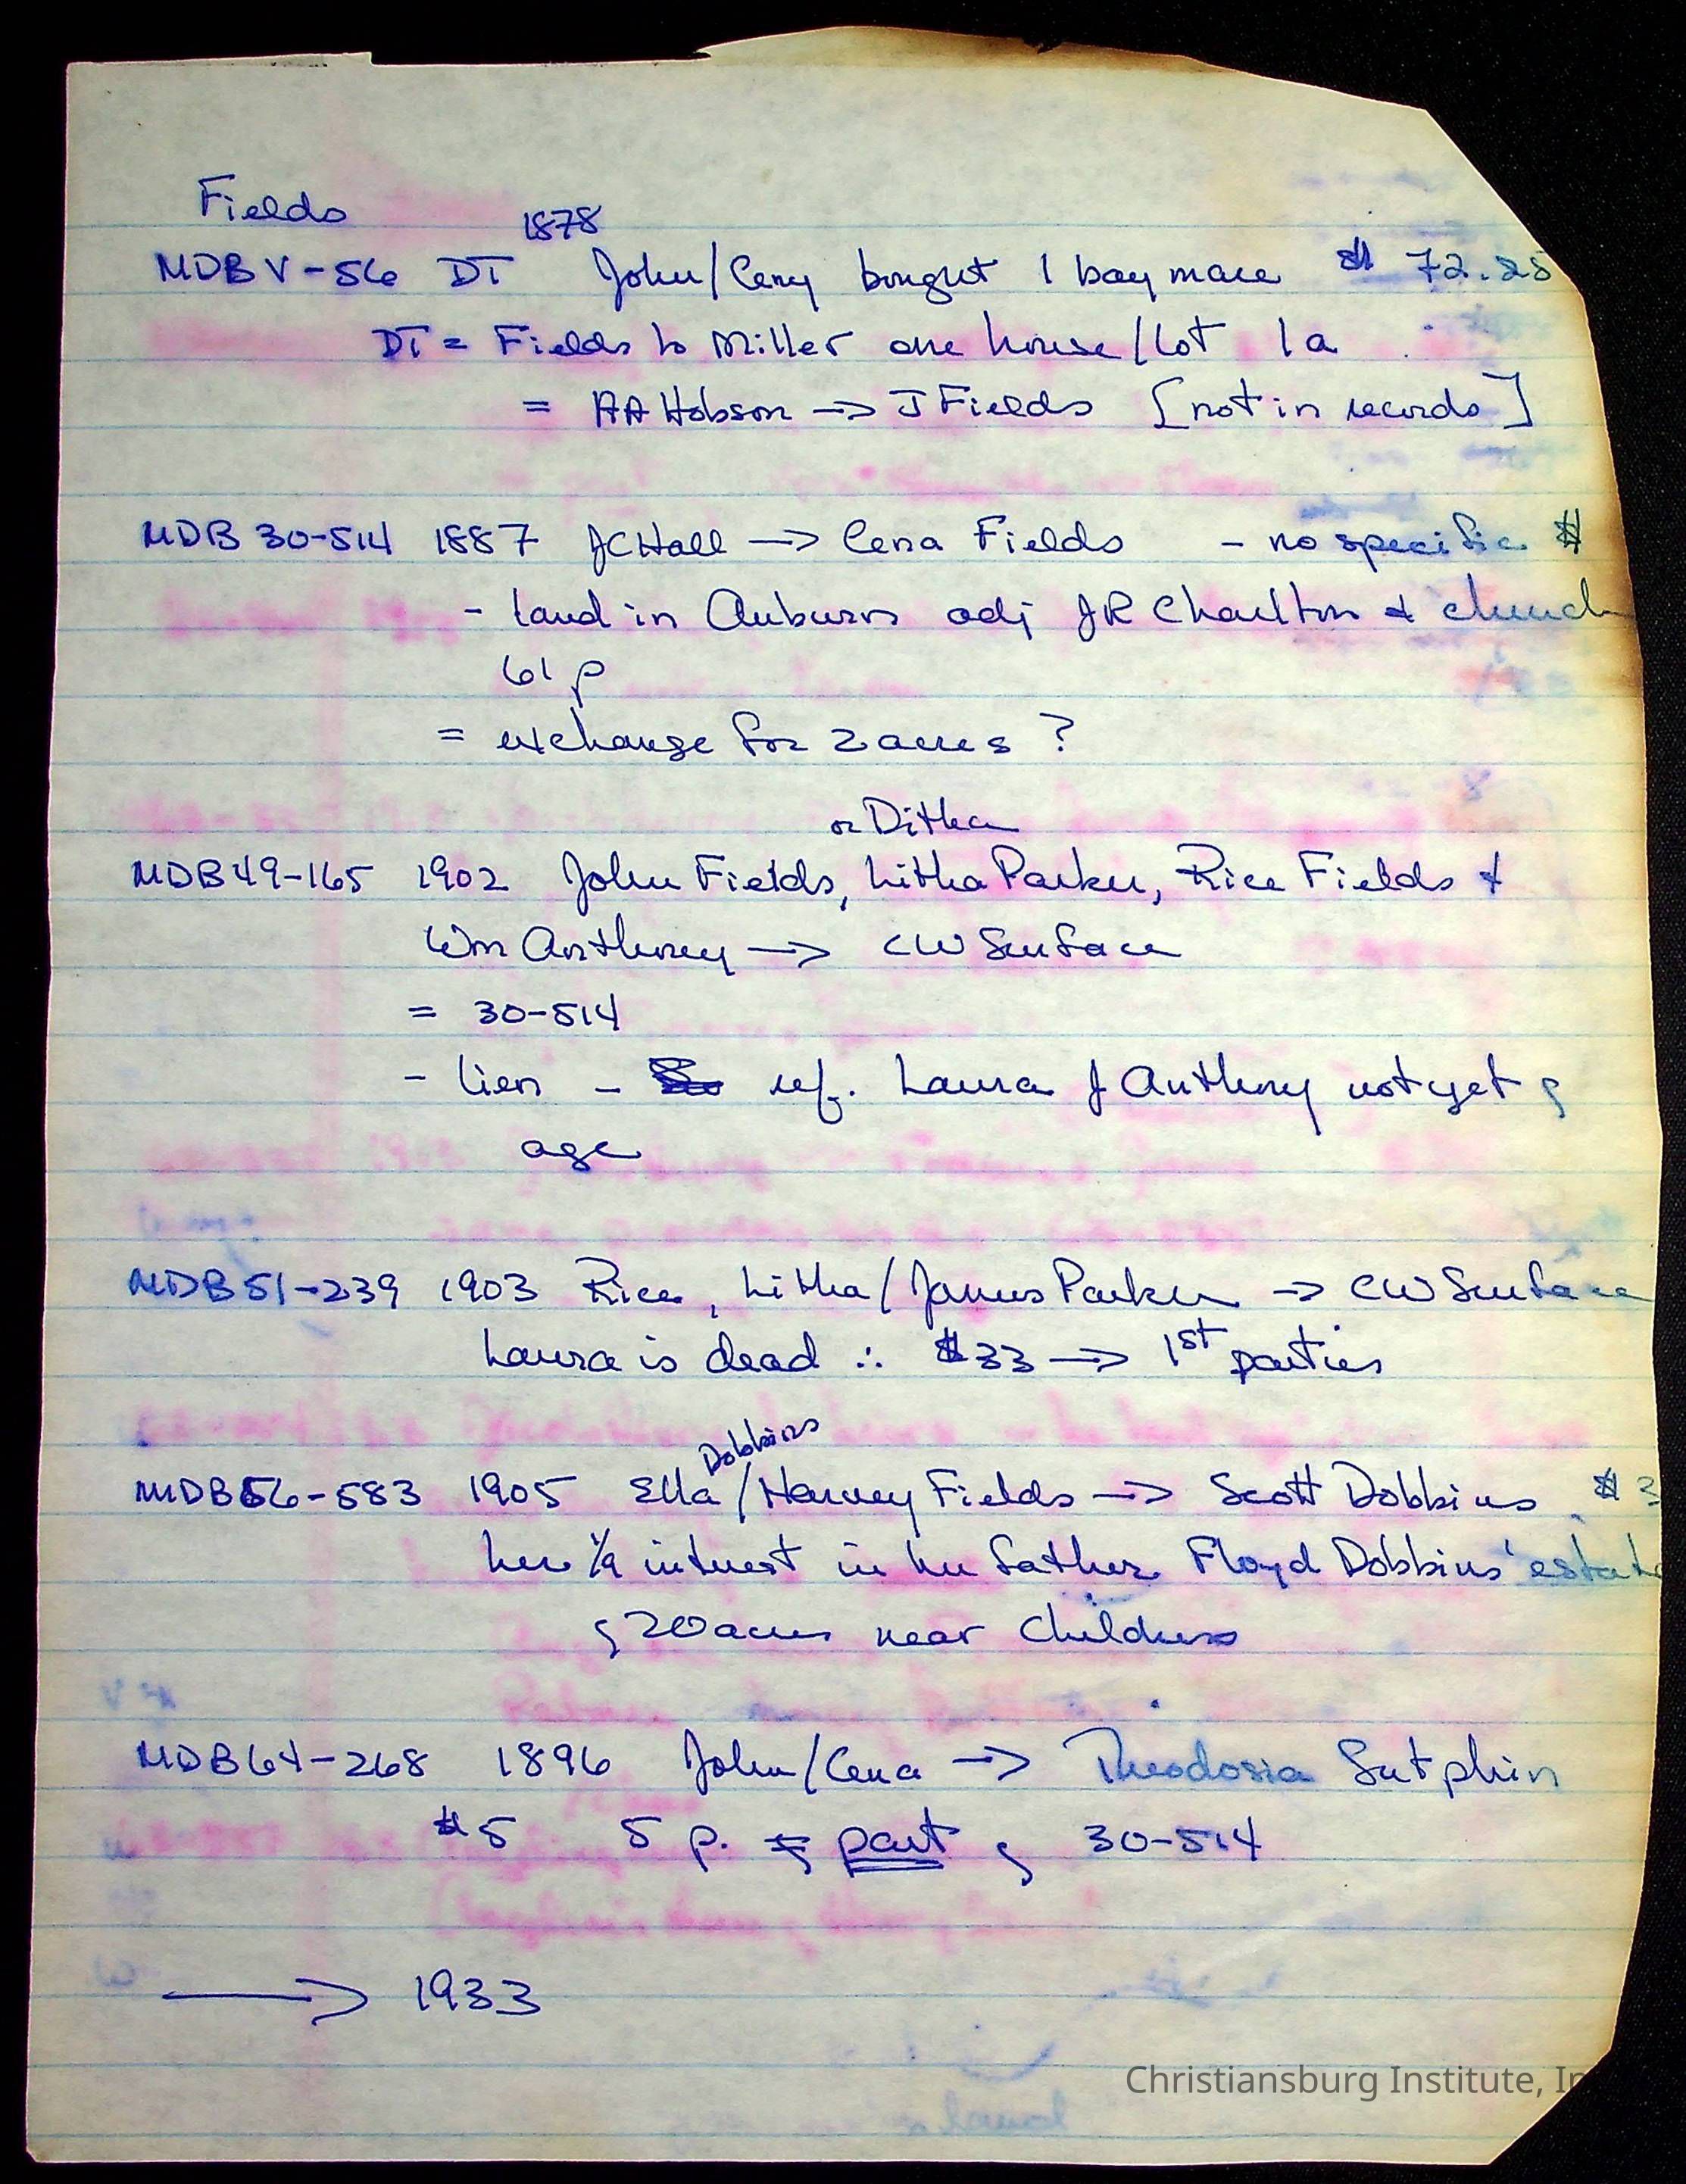 Fields
1878
MDB V-56 DT John/Ceny bought 1 bay mare $ 72.25
DT = Fields to Miller one house/lot 1a
= AA Hobson -> J Fields [not in records]
MDB 30-514 1887 JC Hall -> Cena Fields - no specific $
- land in Auburn adj JR Charlton & church
61 p
= exchange for 2 acres ?
or Ditha
MDB 49-165 1902 John Fields, Litha Parker, Rice Fields &
Wm Anthony -> CW Surface
= 30-514
- lien - ref. Laura J Anthony not yet of
age
MDB 51-239 1903 Rice, Litha/James Parker -> CW Surface
Laura is dead ∴ $33 -> 1st parties
Dobbins
MDB 56-583 1905 Ella/Harvey Fields -> Scott Dobbins $ 3
her 1/9 interest in her father Floyd Dobbins' estate
of 20 acres near Childress
MDB 64-268 1896 John/Cena -> Theodosia Sutphin
$5 5 p. part of 30-514
-> 1933
Christiansburg Institute, In